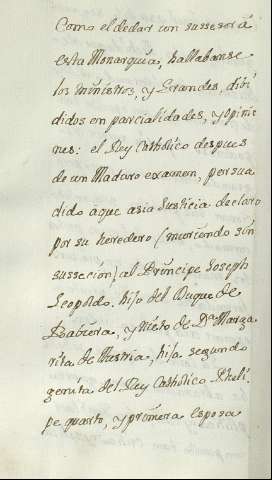 Como el de dar un sussesor á
esta Monarquia, hallabanse
los ministros, y Grandes, divi
didos en parcialidades, y opinio
nes: el Rey Catholico despues
de un Maduro examen, persua
dido áque asia Justicia declaro
por su heredero (muriendo sin
sussecion) al Principe Joseph
Leopoldo, hijo del Duque de
Baviera, y nieto de Dª Marga
rita de Austria, hija segundo
genita del Rey Catholico Pheli
pe quarto, y primera esposa